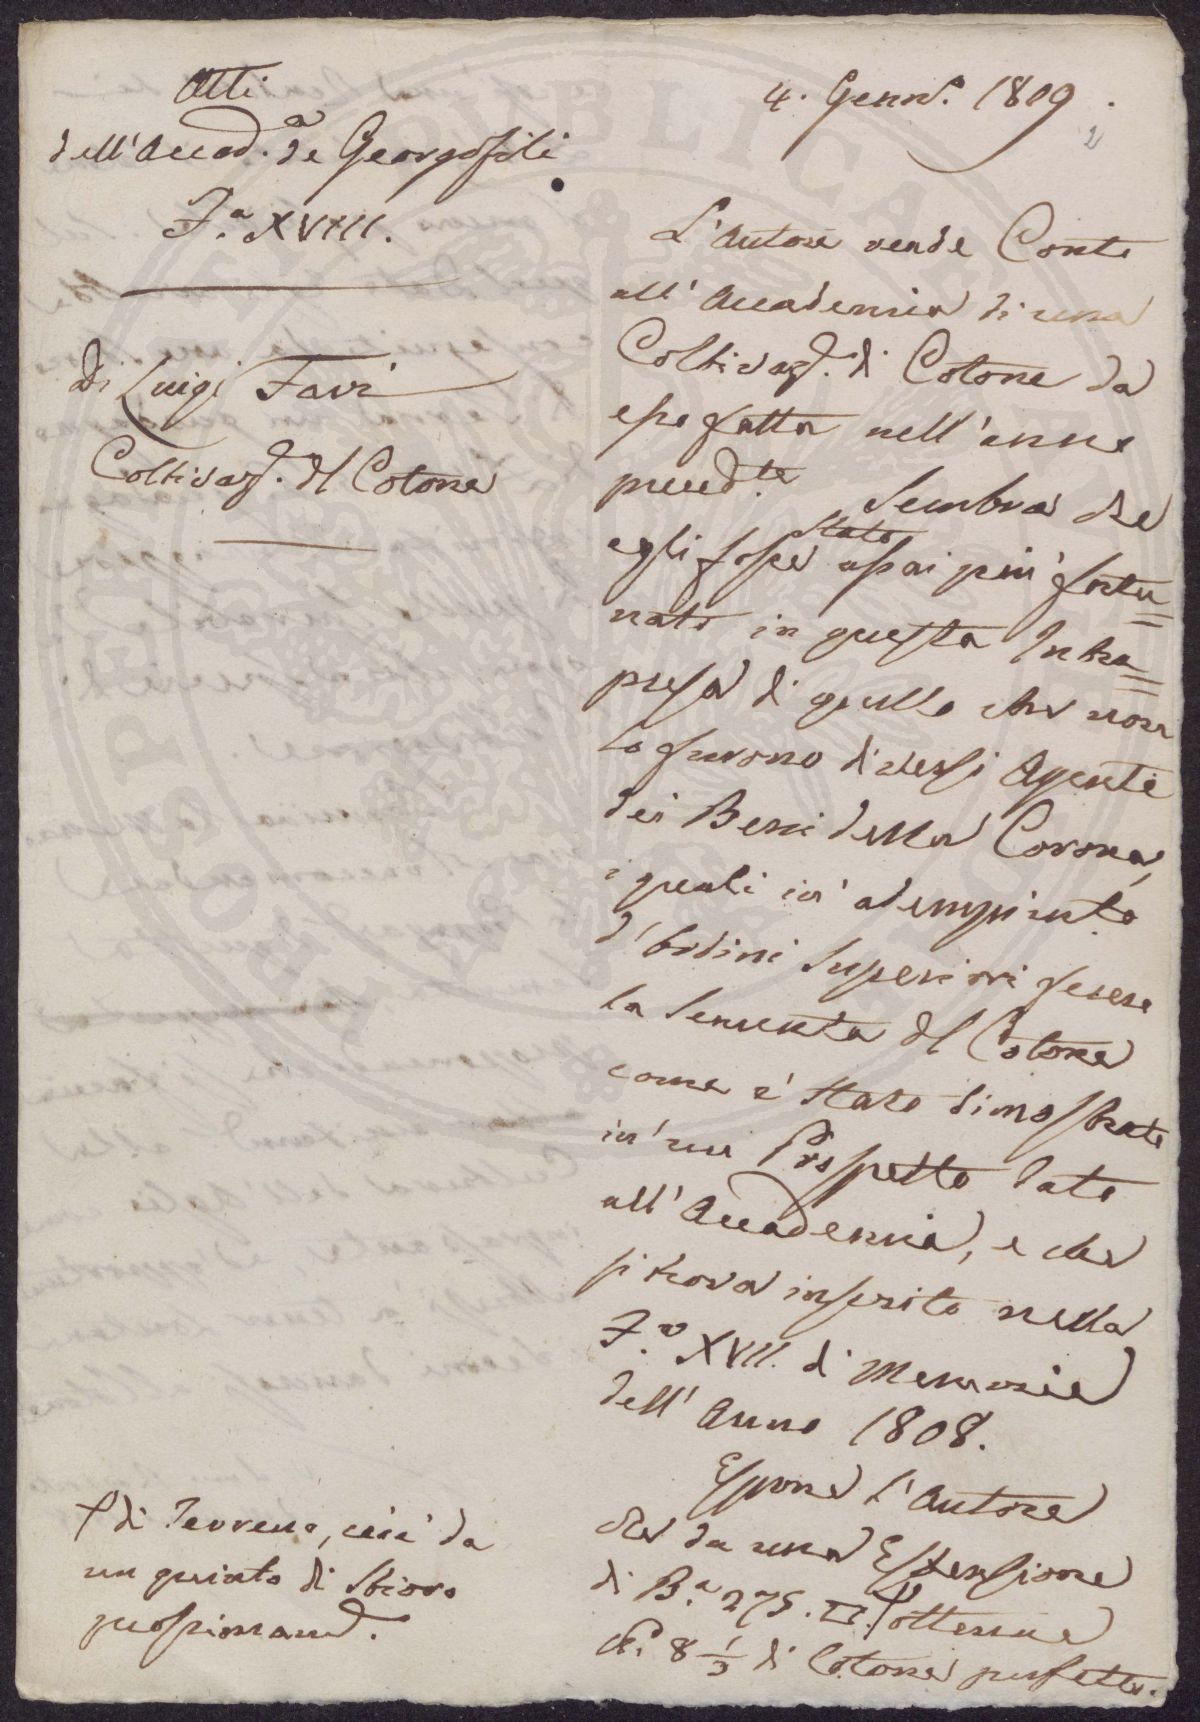 Atti
dell'Accad.a de Georgofili
F.a XVIII.
Di Luigi Favi
Coltivaz.e del Cotone
4. Genn.o 1809.
2
L'Autore rende Conto
all'Accademia di una
Coltivaz.e di Cotone da
esso fatta nell'anno
preced.te Sembra che
egli fosse stato assai più fortu=
nato in questa Intra=
presa di quello che non
lo furono diversi Agenti
dei Beni della Corona,
i quali in adempimento
d'Ordini Superiori fecero
la Sementa del Cotone
come è stato dimostrato
in un Prospetto dato
all'Accademia, e che
si trova inserito nella
F.a XVII. di Memorie
dell'Anno 1808.
Espone l'Autore
che da una Estensione
di B.a 275. □. ottenne
8 1/3 di Cotone perfetto.
di Terreno, cioè da
un quinto di Stioro
prossimam.e